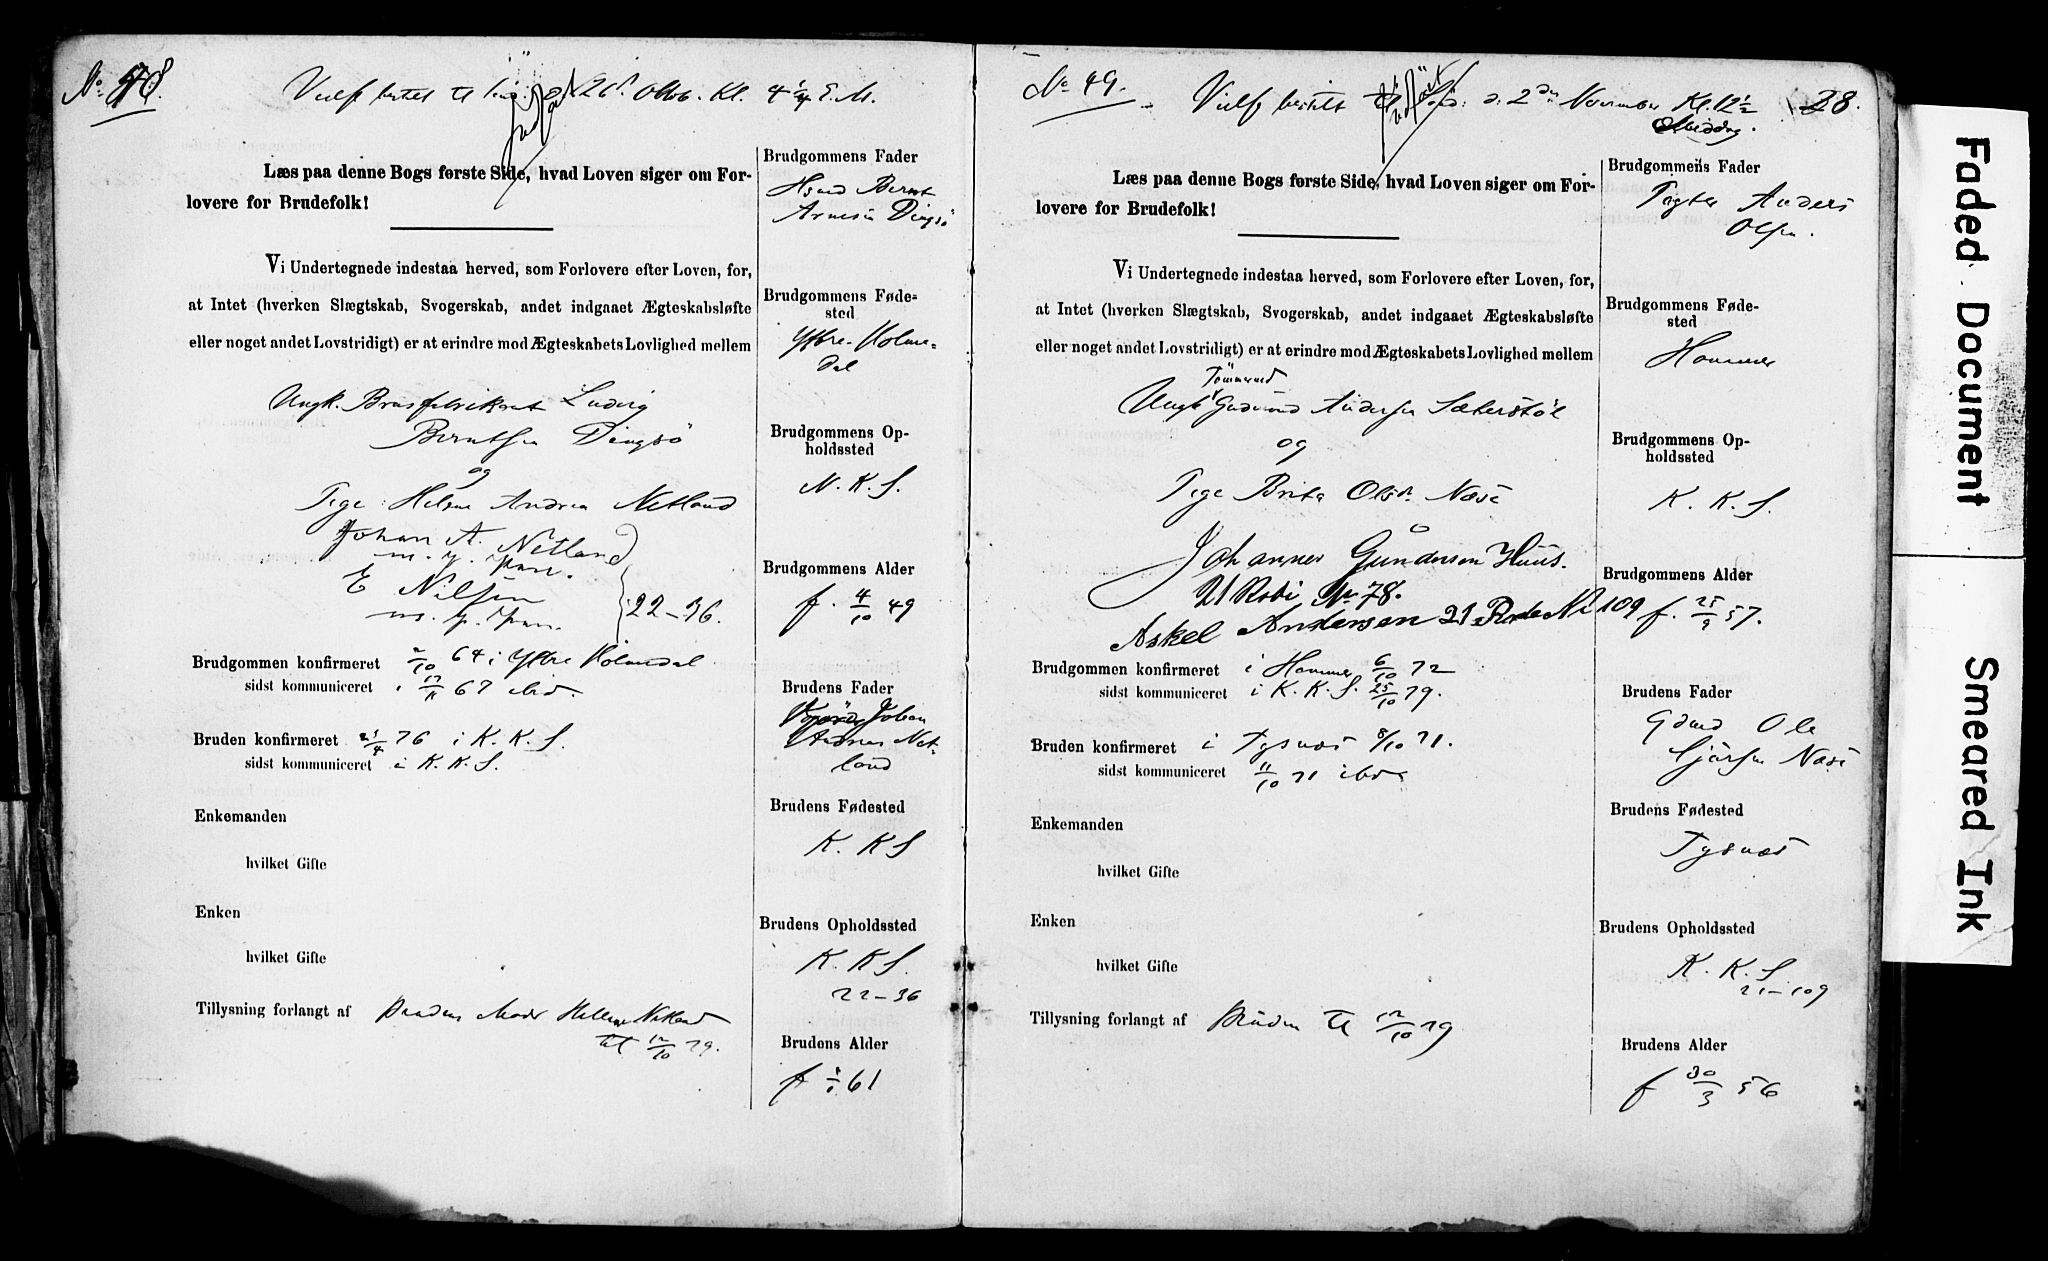 No 48.
Vielse bestilt til Søndag d 26de Oktb. Kl. 4 1/4 E.M.
Læs paa denne Bogs første Side, hvad Loven siger om For-
lovere for Brudefolk!
Vi Undertegnede indestaa herved, som Forlovere efter Loven, for,
at Intet (hverken Slægtskab, Svogerskab, andet indgaaet Ægteskabsløfte
eller noget andet Lovstridigt) er at erindre mod Ægteskabets Lovlighed mellem
Ungk. Ludvig
Berntsen Dingsö
og
Pige: Helene Andrea Netland
Johan A. Netland
m. p. Pen.
E Nilsen
m. p. Pen.
22-36.
Brudgommen konfirmeret 2/10 64 i Yttre Holmedal
sidst kommuniceret i 17/11 67 ibid.
Bruden konfirmeret 23/4 76 i K. K. S.
sidst kommuniceret i K. K. S.
Enkemanden
hvilket Gifte
Enken
hvilket Gifte
Tillysning forlangt af Brudens Moder Netland
til 12/10 79.
Brudgommens Fader
Hsmd Bernt
Arnesen Dingsö
Brudgommens Føde-
sted
Yttre-Holme-
dal
Brudgommens Op-
holdssted
N. K. S.
Brudgommens Alder
f. 4/10 49
Brudens Fader
Johan
Andreas Net-
land
Brudens Fødested
K. K S
Brudens Opholdssted
K. K S.
22-36
Brudens Alder
f 61
No 49.
Vielse bestilt til Sønd: d. 2den November Kl. 12 1/2
28.
Middag.
Læs paa denne Bogs første Side, hvad Loven siger om For-
lovere for Brudefolk!
Vi Undertegnede indestaa herved, som Forlovere efter Loven, for,
at Intet (hverken Slægtskab, Svogerskab, andet indgaaet Ægteskabsløfte
eller noget andet Lovstridigt) er at erindre mod Ægteskabets Lovlighed mellem
Tömmermd
Ungk Gudmund Andersen Sæterstöl
og
Pige Brita Olsdr Næse
Johannes Gundersen Huus.
21 Rode No 78.
Askel Andersen 21 Rode No 109
Brudgommen konfirmeret i Hammer 6/10 72
sidst kommuniceret i K. K. S. 25/10 79.
Bruden konfirmeret i Tysnæs 8/10 71.
sidst kommuniceret 11/10 71 ibid
Enkemanden
hvilket Gifte
Enken
hvilket Gifte
Tillysning forlangt af Bruden til 12/10 79
Brudgommens Fader
Anders
Olsen.
Brudgommens Føde-
sted
Hammer
Brudgommens Op-
holdssted
K. K. S.
Brudgommens Alder
f. 25/9 57.
Brudens Fader
Gdmd Ole
Næse
Brudens Fødested
Tysnæs
Brudens Opholdssted
K. K. S
21-109
Brudens Alder
f 30/3 56
Faded Document
Smeared Ink